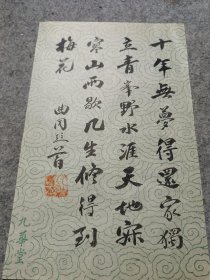 十年無夢得還家獨
立青峯野水涯天地寂
寒山雨歇几生修得到
梅花
九華堂